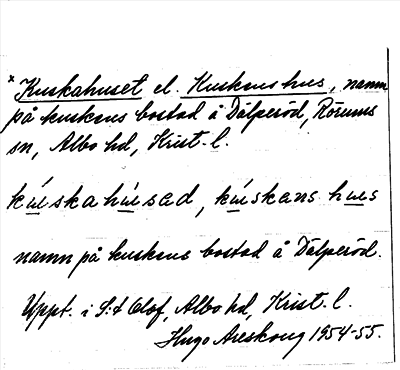 * Kuskahuset el. Kuskens hus, namn
på kuskens bostad å Dälperöd, Rörums
sn, Albo hd, Krist. l.
kúskahúsad, kúskans hus
namn på kuskens bostad å Dälperöd.
Uppt. i S:t Olof, Albo hd, Krist. l.
Hugo Areskoug 1954-55.